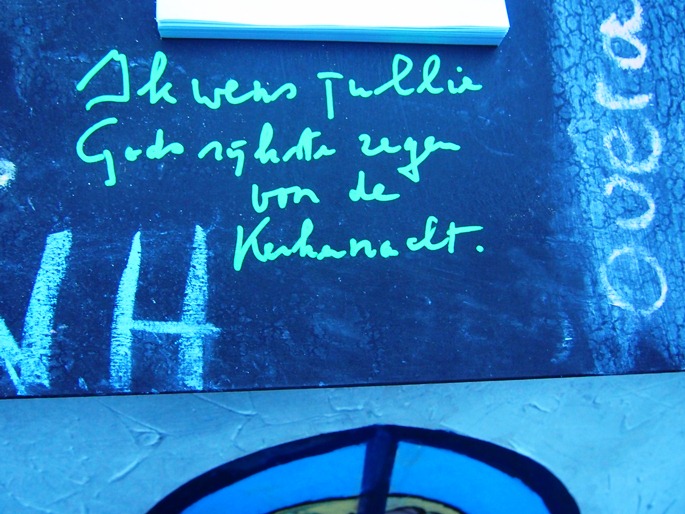 Ik wens jullie
Gods rijkste zegen
van de
Kerkenacht.
WH
overa